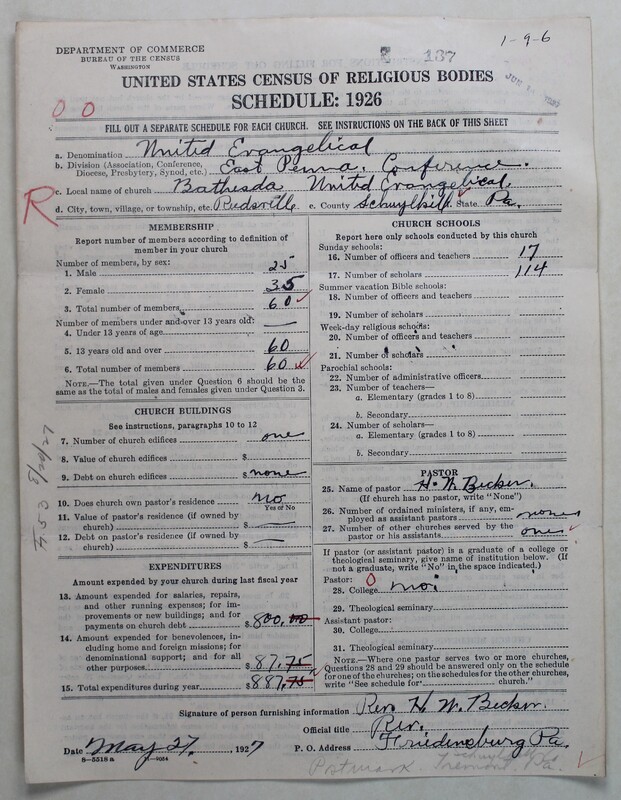 1-9-6
DEPARTMENT OF COMMERCE
BUREAU OF THE CENSUS
WASHINGTON
137
UNITED STATES CENSUS OF RELIGIOUS BODIES
SCHEDULE: 1926
0 0
FILL OUT A SEPARATE SCHEDULE FOR EACH CHURCH. SEE INSTRUCTIONS ON THE BACK OF THIS SHEET
a. Denomination United Evangelical
b. Division (Association, Conference, Diocese, Presbytery, Synod, etc.) East Penna. Conference.
c. Local name of church Bathesda United Evangelical
R
d. City, town, village, or township, etc. Rudsville e. County Schuylkill f. State Pa.
MEMBERSHIP
Report number of members according to definition of
member in your church
Number of members, by sex:
1. Male 25
2. Female 35
3. Total number of members 60
Number of members under and over 13 years old:
4. Under 13 years of age —
5. 13 years old and over 60
6. Total number of members 60
NOTE.—The total given under Question 6 should be the
same as the total of males and females given under Question 3.
CHURCH BUILDINGS
See instructions, paragraphs 10 to 12
7. Number of church edifices one
8. Value of church edifices $
9. Debt on church edifices $ none
10. Does church own pastor's residence No
Yes or No
11. Value of pastor's residence (if owned by
church) $ —
12. Debt on pastor's residence (if owned by
church) $ —
EXPENDITURES
Amount expended by your church during last fiscal year
13. Amount expended for salaries, repairs,
and other running expenses; for im-
provements or new buildings; and for
payments on church debt $ 800.00
14. Amount expended for benevolences,
including home and foreign missions; for
denominational support; and for all
other purposes $ 87.75
15. Total expenditures during year $ 887.75
CHURCH SCHOOLS
Report here only schools conducted by this church
Sunday schools:
16. Number of officers and teachers 17
17. Number of scholars 114
Summer vacation Bible schools:
18. Number of officers and teachers
19. Number of scholars
Week-day religious schools:
20. Number of officers and teachers
21. Number of scholars
Parochial schools:
22. Number of administrative officers
23. Number of teachers—
a. Elementary (grades 1 to 8)
b. Secondary
24. Number of scholars—
a. Elementary (grades 1 to 8)
b. Secondary
PASTOR
25. Name of pastor H. W. Becker.
(If church has no pastor, write "None")
26. Number of ordained ministers, if any, em-
ployed as assistant pastors none
27. Number of other churches served by the
pastor or his assistants one
If pastor (or assistant pastor) is a graduate of a college or
theological seminary, give name of institution below. (If
not a graduate, write "No" in the space indicated.)
Pastor: 0
28. College no.
29. Theological seminary
Assistant pastor:
30. College
31. Theological seminary
NOTE.—Where one pastor serves two or more churches,
Questions 28 and 29 should be answered only on the schedule
for one of the churches; on the schedules for the other churches,
write "See schedule for church.)
Signature of person furnishing information Rev. H. W. Becker.
Official title Rev.
Date May 27, 1927 P. O. Address Friedensburg Pa.
8—5518 a
Postmark. Tremont, Pa.
8/20/27